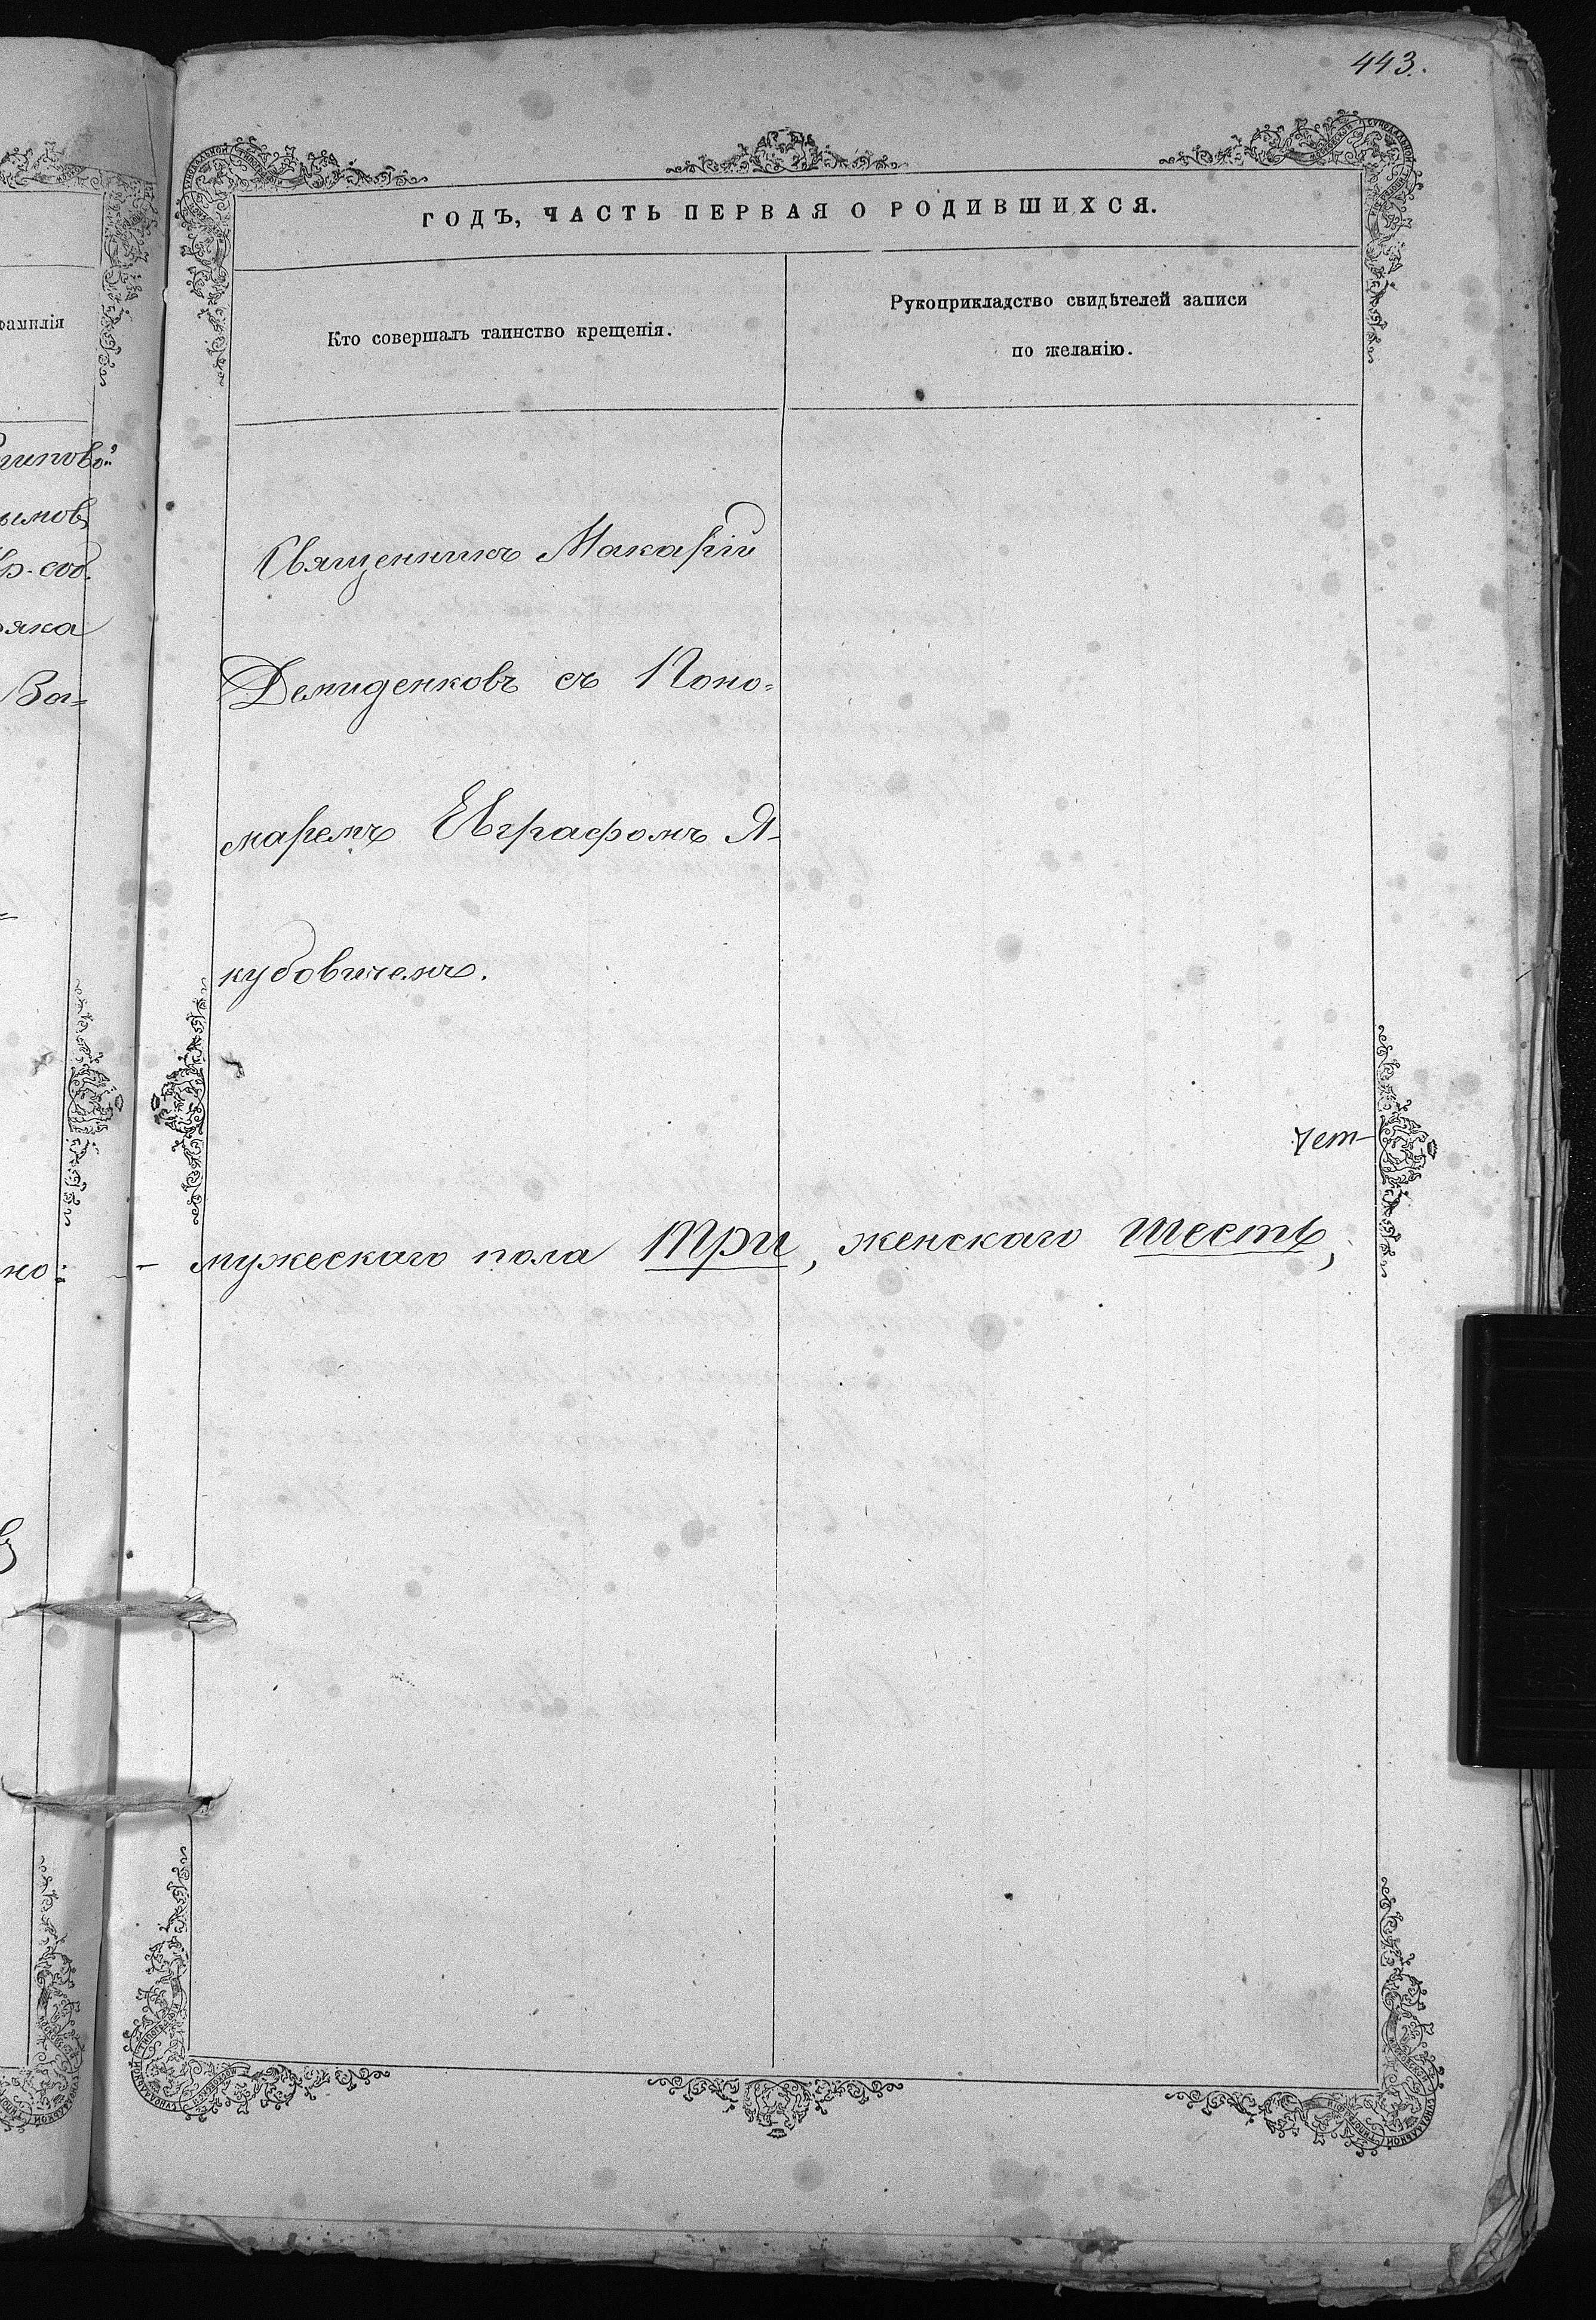 443.
ГОДЪ, ЧАСТЬ ПЕРВАЯ О РОДИВШИХСЯ.
фамилія
Кто совершалъ таинство крещенія.
Рукоприкладство свидѣтелей записи
по желанію.
Священникъ Макарій
Демиденковъ съ Поно=
маремъ Евграфомъ Я-
кубовичемъ.
чет-
мужескаго пола три, женскаго шесть,